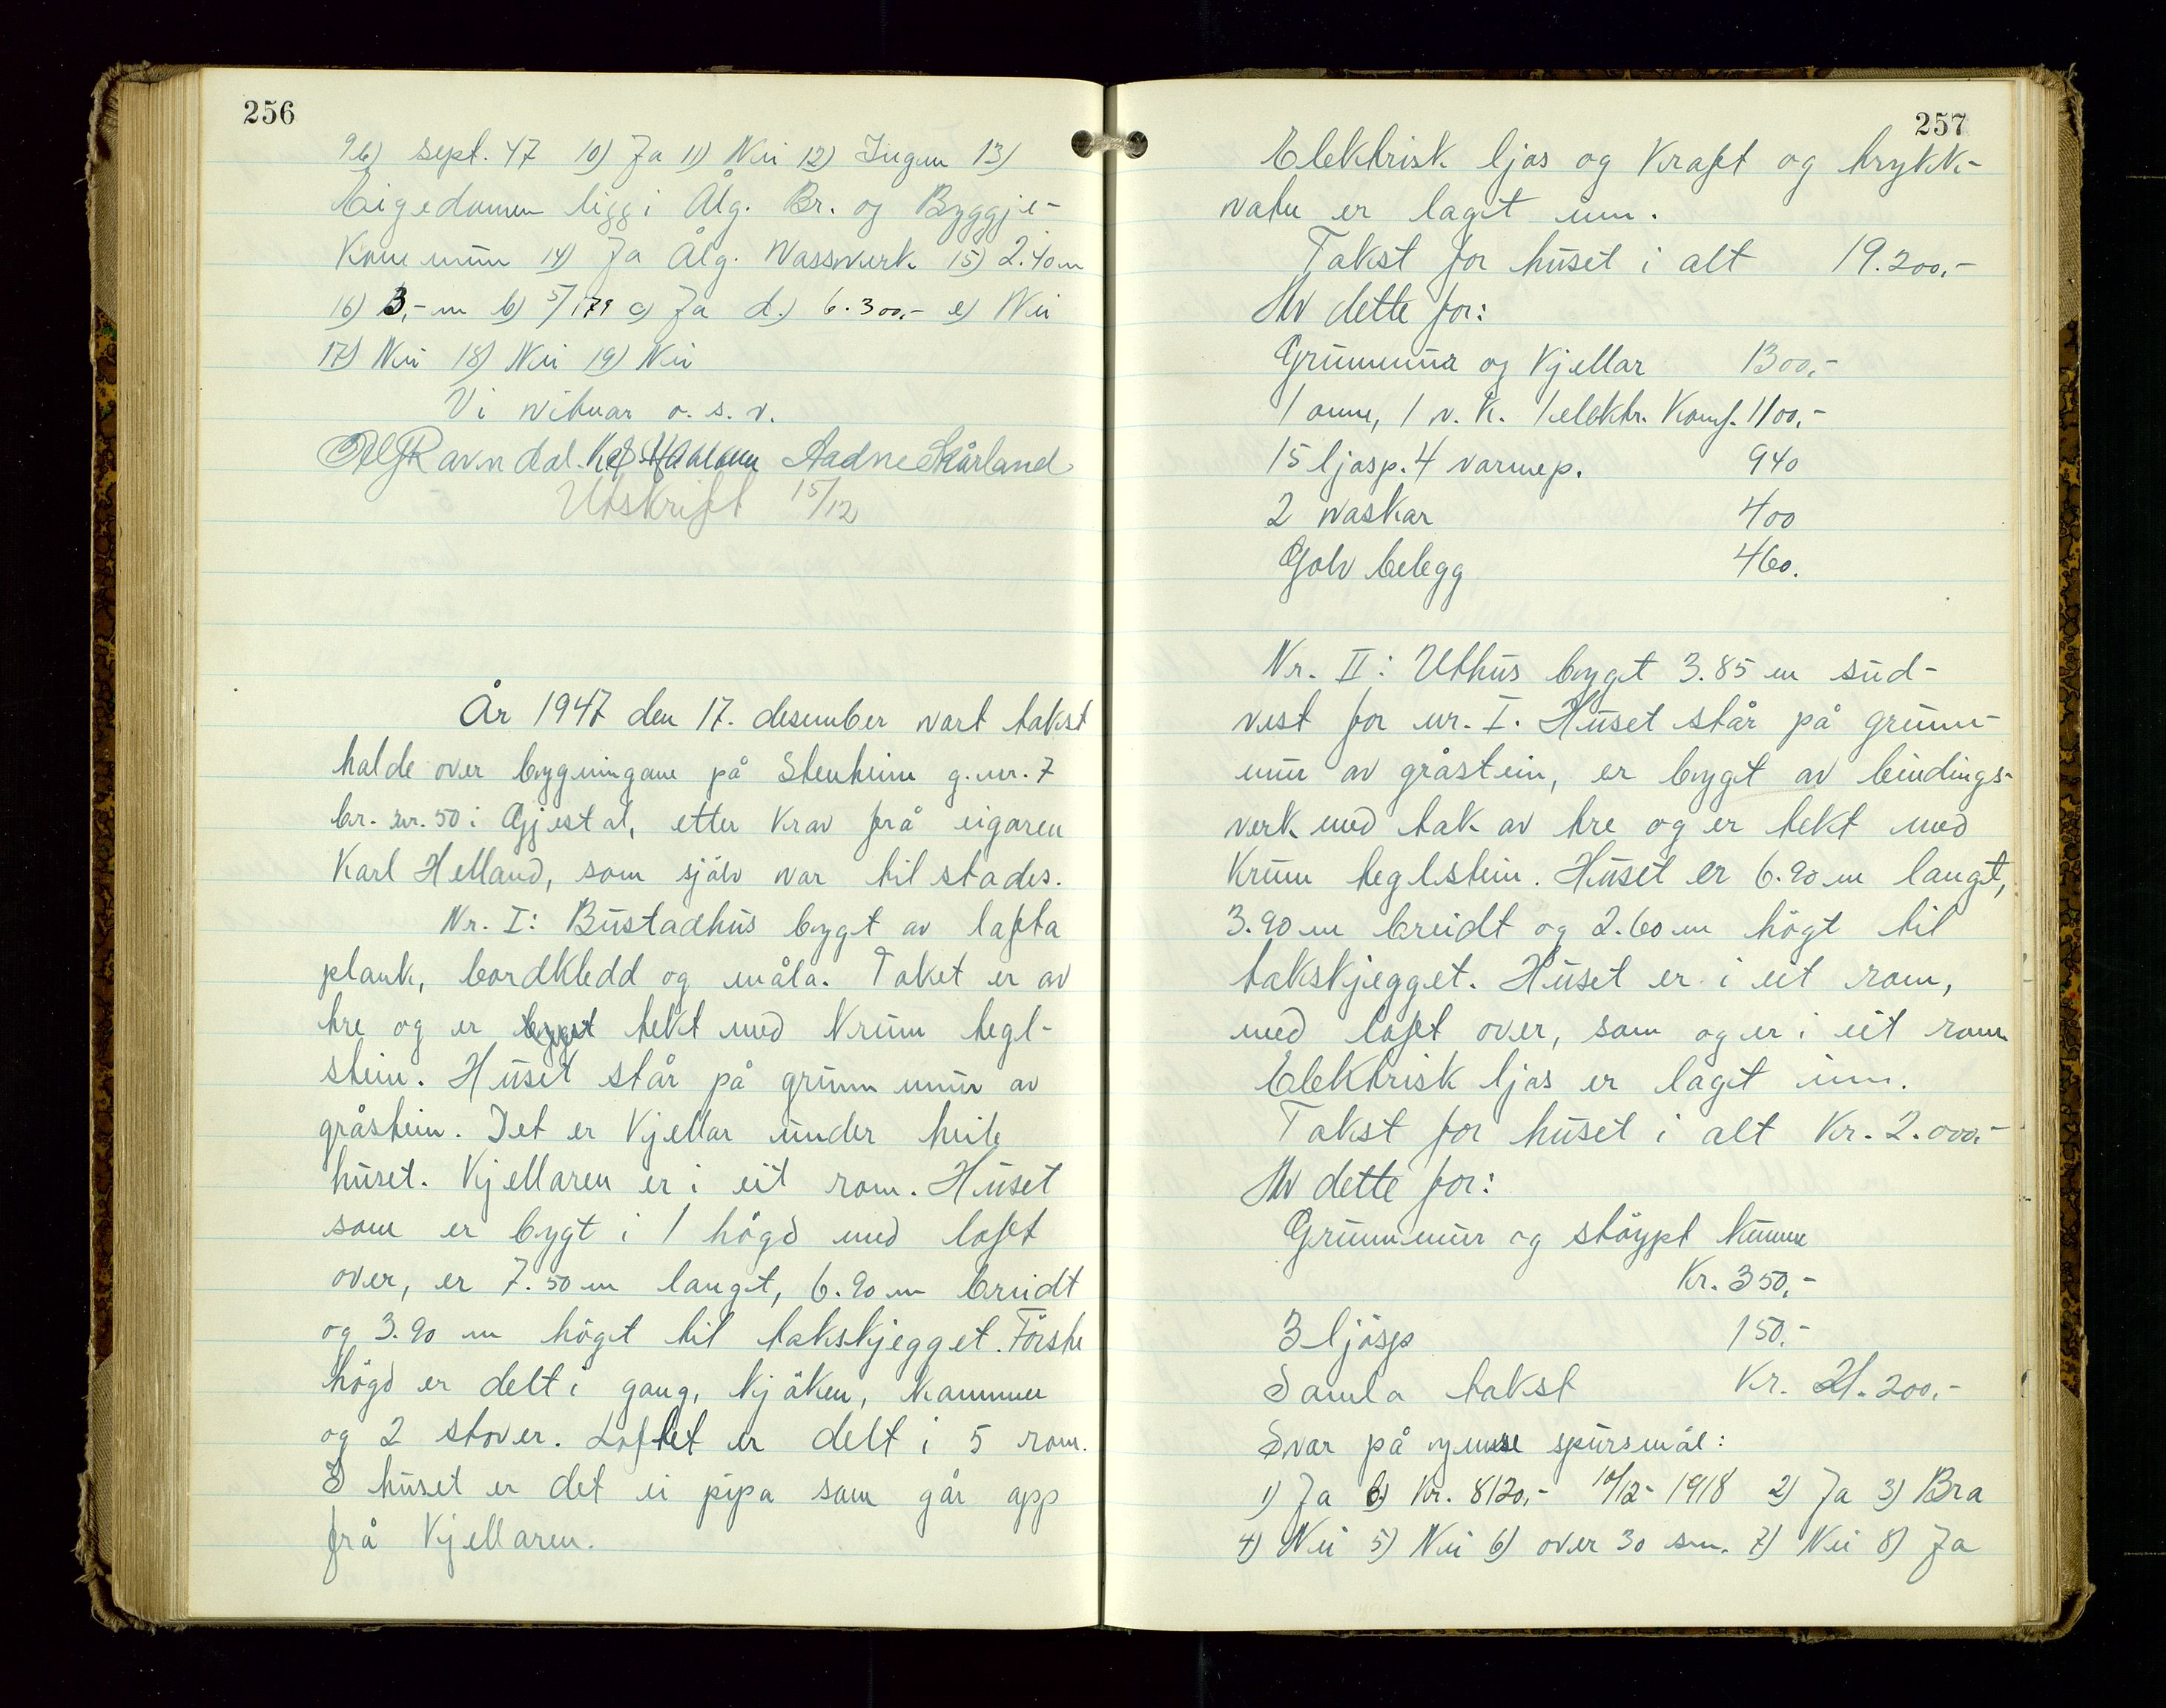 256
9b) sept. 47 10) Ja 11) Nei 12) Ingen 13)
Eigedomen ligg i Ålg. Br. og Byggje-
kommun 14) Ja Ålg. Vassverk 15) 2.40 m
16) 3,- m b) 5/179 c) Ja d.) 6.300,- e) Nei
17) Nei 18) Nei 19) Nei
Vi vitnar o. s. v.
Ravndal. Aadne Skårland
Utskrift 15/12
År 1947 den 17. desember vart takst
halde over bygningane på Stenheim g.nr. 7
br. nr. 50 i Gjestal, etter krav frå eigaren
Karl Helland, som sjølv var til stades.
Nr. I: Bustadhus bygt av lafta
plank, bordkledd og måla. Taket er av
tre og er tekt med krum tegl-
stein. Huset står på grunn mur av
gråstein. Det er kjellar under heile
huset. Kjellaren er i eit rom. Huset
som er bygt i 1 høgd med loft
over, er 7.50 m langt, 6.90 m breidt
og 3.90 m högt til takskjegget. Förste
högd er delt i gang, kjöken, kammer
og 2 stover. Loftet er delt i 5 rom.
I huset er det ei pipa som går opp
frå kjellaren.
257
Elektrisk ljos og kraft og trykk-
vatn er lagt inn.
Takst for huset i alt 19.200,-
Av dette for:
Grunnmur og kjellar 1300,-
1 omn, 1 v. k. 1 elektr. komf. 1100,-
15 ljosp. 4 varmep. 940
2 vaskar 400
Golv belegg 460.
Nr. II: Uthus bygt 3.85 m sud-
vest for nr. I. Huset står på grunn-
mur av gråstein, er bygt av bindings-
verk med tak av tre og er tekt med
krum teglstein. Huset er 6.90 m langt,
3.90 m breidt og 2.60 m högt til
takskjegget. Huset er i eit rom,
med loft over, som og er i eit rom
Elektrisk ljos er lagt inn.
Takst for huset i alt Kr. 2.000,-
Av dette for:
Grunnmur og stöypt kumme
Kr. 350,-
3 ljosp 150.-
Samla takst Kr. 21.200,-
Svar på ymse spursmål:
1) Ja b) Kr. 8120,- 10/12- 1918 2) Ja 3) Bra
4) Nei 5) Nei 6) over 30 sm. 7) Nei 8) Ja